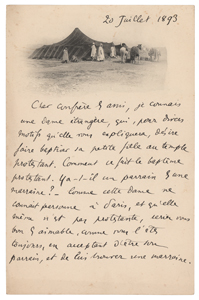 20 Juillet 1893
Cher confrère & ami, je connais
une dame étrangère, qui, pour divers
motifs qu'elle vous expliquera, désire
faire baptiser sa petite fille au temple
protestant. Comment se fait le baptême
protestant. Y a-t-il un parrain & une
marraine? - Comme cette dame ne
connaît personne à Paris, et qu'elle
même n'est pas protestante, serez vous
bon & aimable, comme vous l'êts
toujours, en acceptant d'être son
parrain, et de lui trouver une marraine.